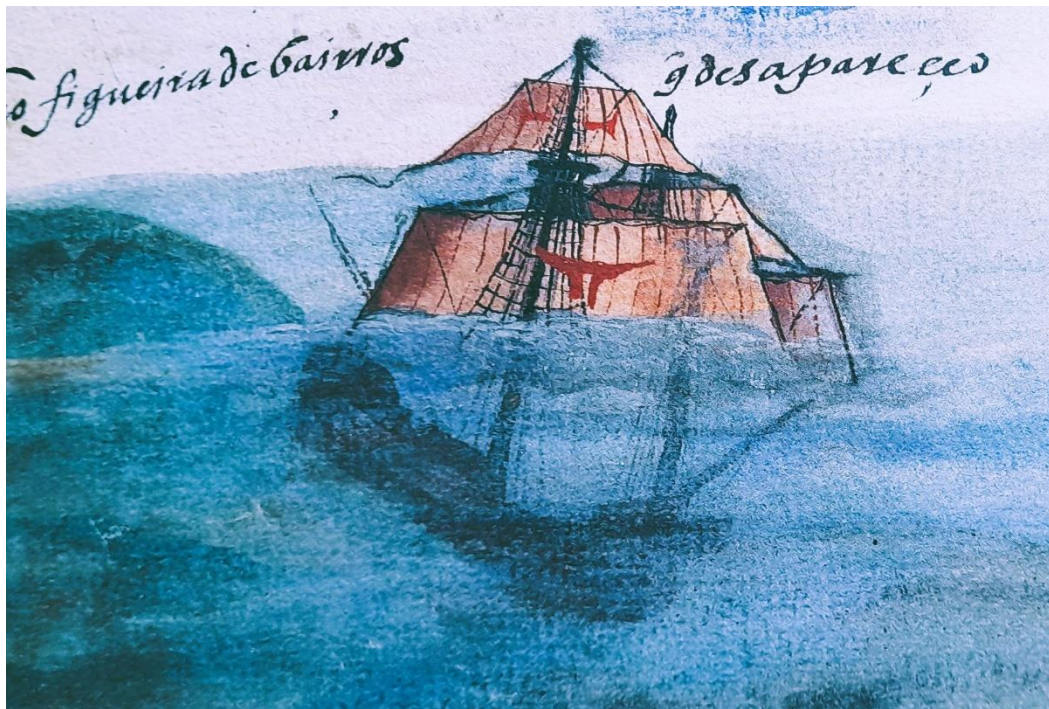 o figueira de bairros
q̃ desapareçeo